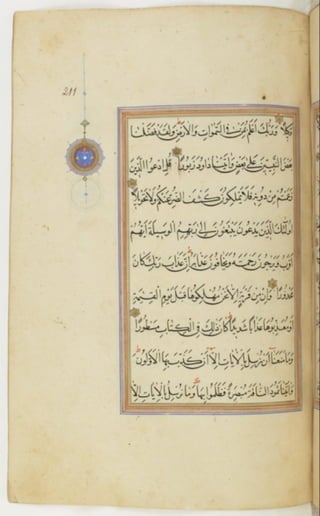 211
وكيلا وربك اعلم بمن في السموات والارض ولقد فضلنا
بعض النبيين على بعض واتينا داود زبورا قل ادعوا الذين
زعمتم من دونه فلا يملكون كشف الضر عنكم ولا تحويلا
اولئك الذين يدعون يبتغون الى ربهم الوسيلة ايهم
اقرب ويرجون رحمته ويخافون عذابه ان عذاب ربك كان
محذورا وان من قرية الا نحن مهلكوها قبل يوم القيمة
او معذبوها عذابا شديدا كان ذلك في الكتاب مسطورا
وما منعنا ان نرسل بالايات الا ان كذب بها الاولون
واتينا ثمود الناقة مبصرة فظلموا بها وما نرسل بالايات الا